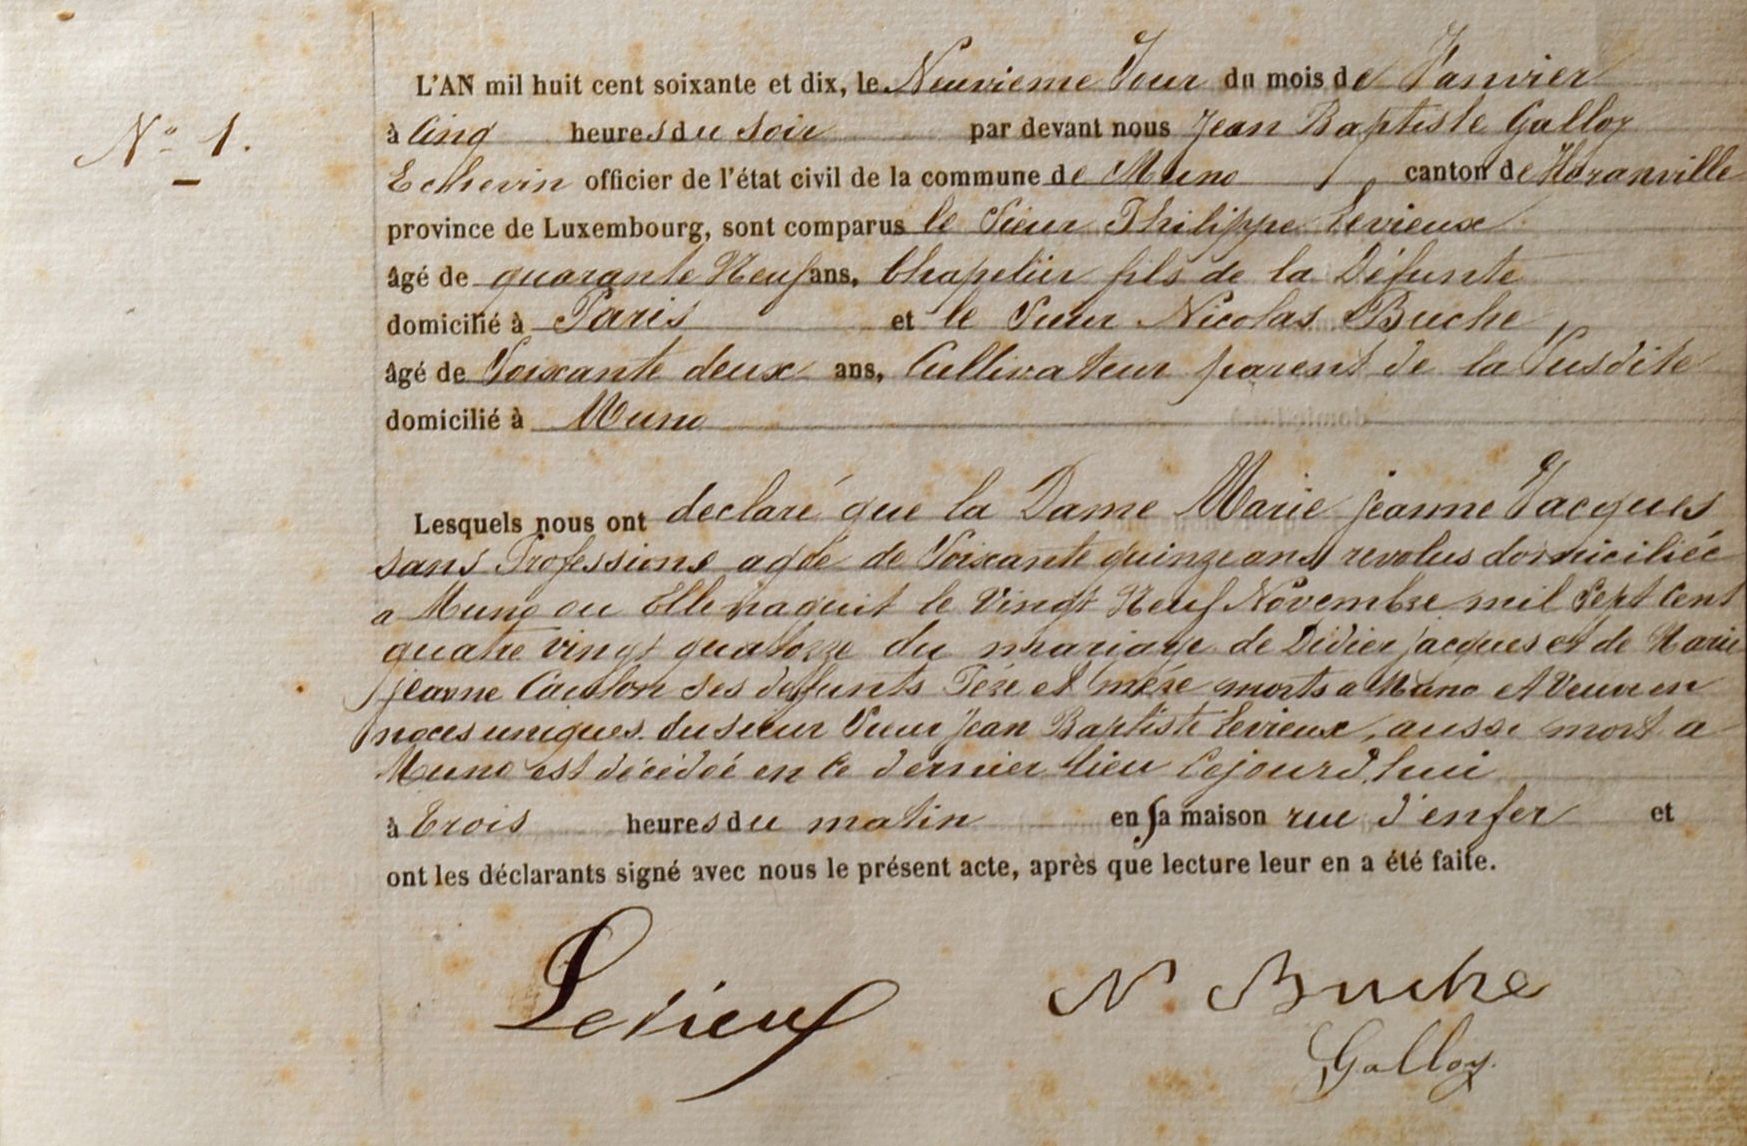 N° 1.
L'AN mil huit cent soixante et dix, le Neuvieme Jour du mois de Janvier
à Cinq heures du soir par devant nous Jean Baptiste Galloy
Echevin officier de l'état civil de la commune de Muno canton de Floranville
province de Luxembourg, sont comparus le Sieur Philippe Levieux
âgé de quarante Neuf ans, Chapelier fils de la Défunte
domicilié à Paris et le Sieur Nicolas Buche
âgé de Soixante deux ans, Cultivateur parent de la Susdite
domicilié à Muno
Lesquels nous ont declaré que la Dame Marie jeanne Jacques
sans Professions agée de Soixante quinze ans revolus domiciliée
a Muno ou Elle naquit le Vingt Neuf Novembre mil Sept Cent
quatre vingt quatorze du mariage de Didier jacques et de Marie
jeanne Caulon ses defunts Père et mère morts a Muno et Veuve en
noces uniques du sieur Sieur Jean Baptiste Levieux, aussi mort a
Muno est décédée en ce dernier lieu Cejourd'hui
à Trois heures du matin en sa maison rue d'enfer et
ont les déclarants signé avec nous le présent acte, après que lecture leur en a été faite.
Levieux N Buche
Galloy